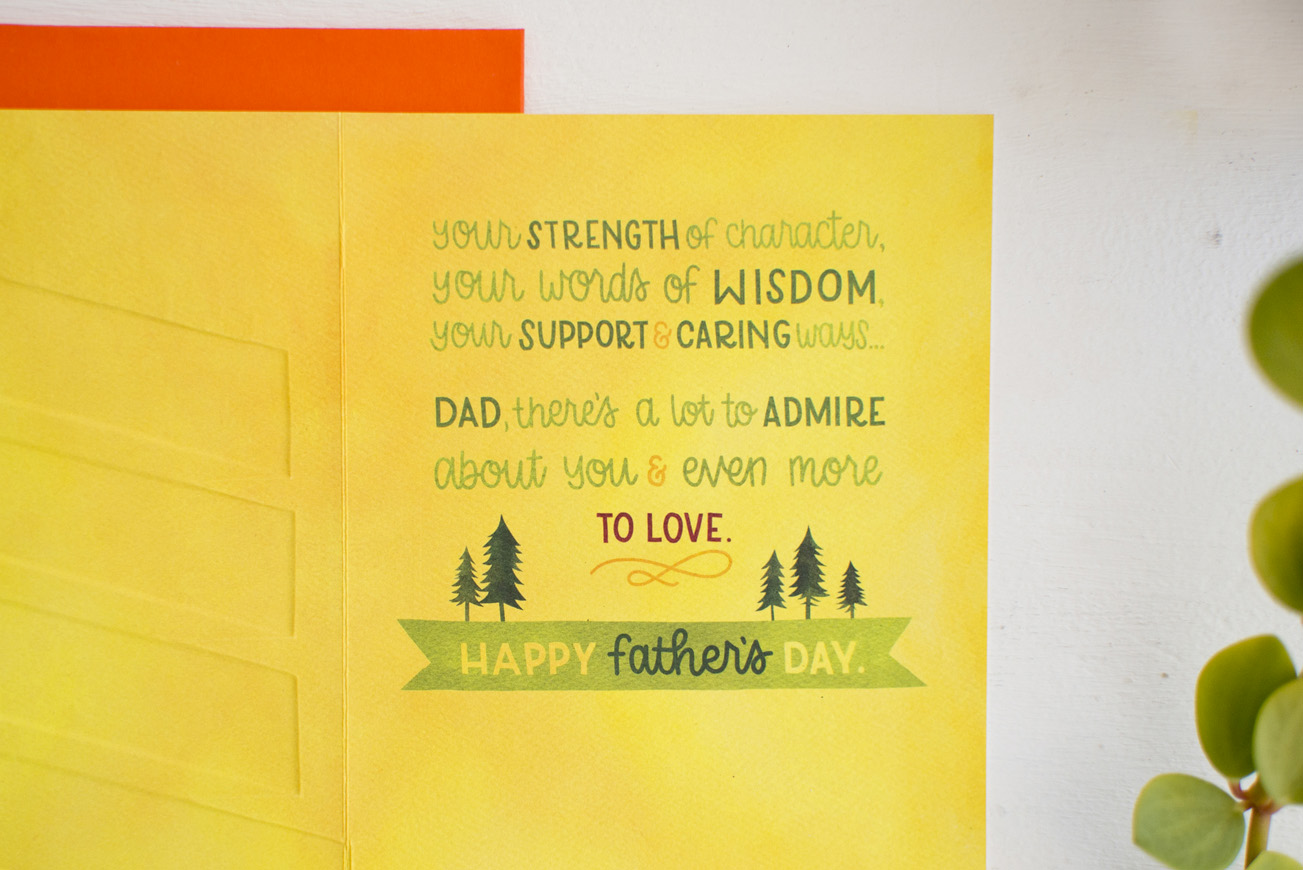 your STRENGTH of character,
your words of WISDOM,
your SUPPORT & CARING ways...
DAD, there's a lot to ADMIRE
about you & even more
TO LOVE.
HAPPY father's DAY.